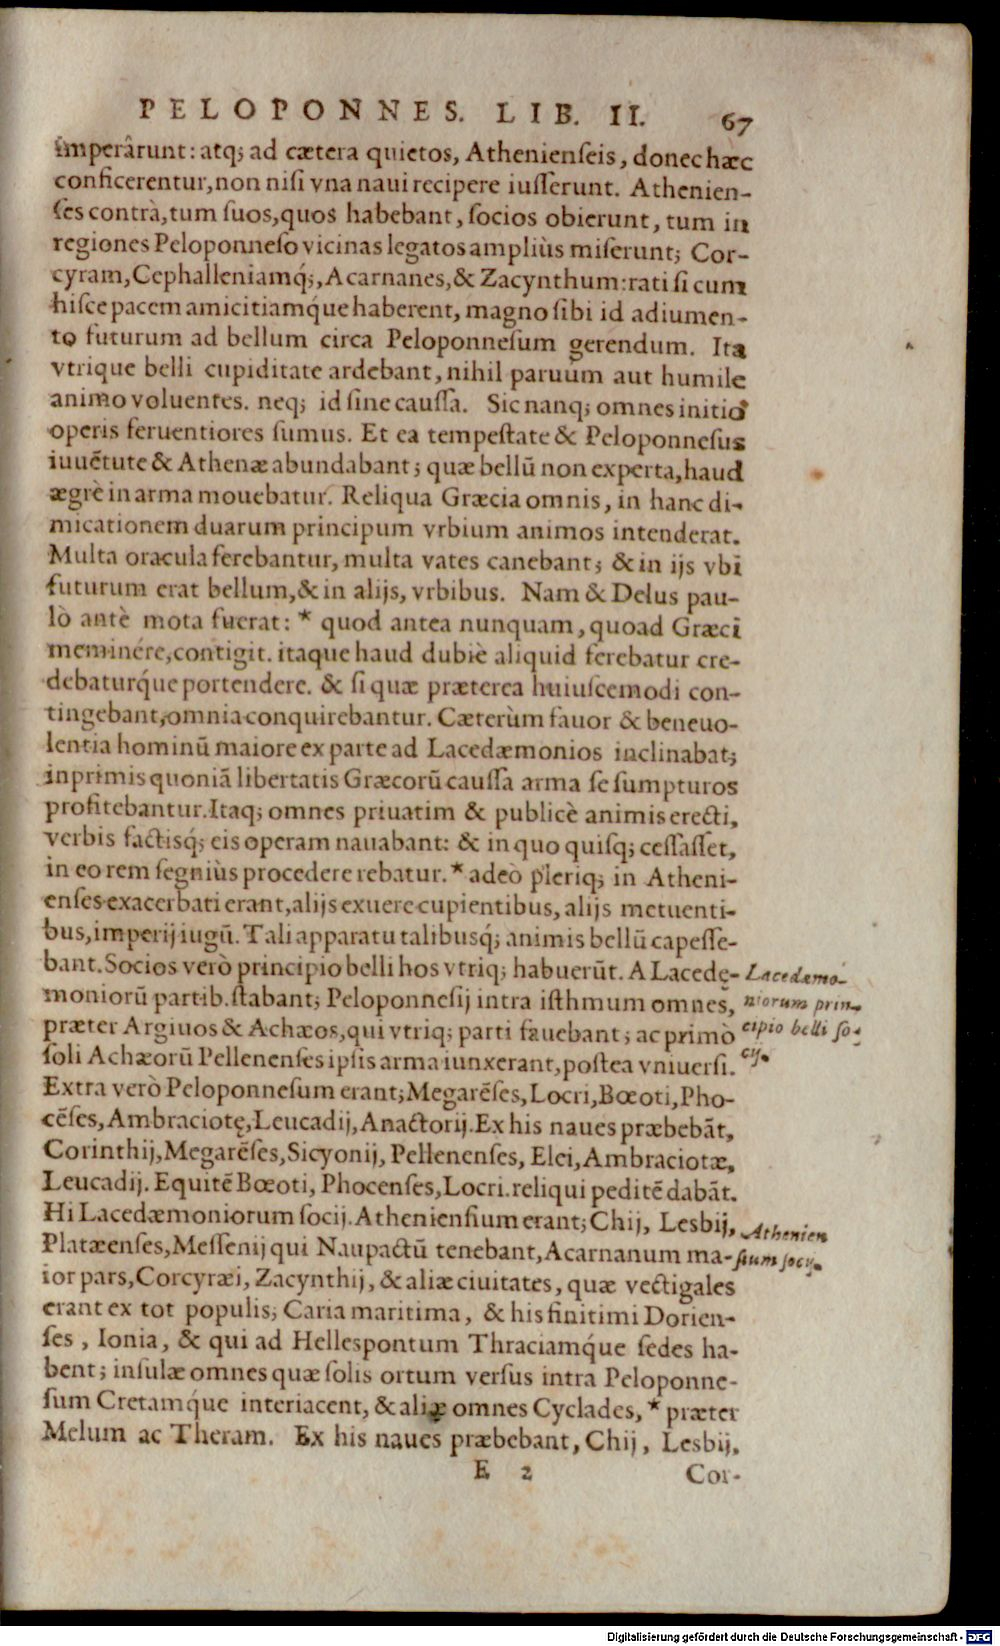 PELOPONNES. LIB. II. 67
imperârunt: atq; ad cætera quietos, Athenienseis, donec hæc
conficerentur, non nisi vna naui recipere iusserunt. Athenien-
ses contrà, tum suos, quos habebant, socios obierunt, tum in
regiones Peloponneso vicinas legatos ampliùs miserunt; Cor-
cyram, Cephalleniamq́;, Acarnanes, & Zacynthum: rati si cum
hisce pacem amicitiamq́ue haberent, magno sibi id adiumen-
to futurum ad bellum circa Peloponnesum gerendum. Ita
vtrique belli cupiditate ardebant, nihil paruúm aut humile
animo voluentes. neq; id sine caussa. Sic nanq; omnes initio
operis feruentiores sumus. Et ea tempestate & Peloponnesus
iuuẽtute & Athenæ abundabant; quæ bellũ non experta, haud
ægrè in arma mouebatur. Reliqua Græcia omnis, in hanc di-
micationem duarum principum vrbium animos intenderat.
Multa oracula ferebantur, multa vates canebant; & in ijs vbi
futurum erat bellum, & in alijs, vrbibus. Nam & Delus pau-
lò antè mota fuerat: * quod antea nunquam, quoad Græci
meminére, contigit. itaque haud dubiè aliquid ferebatur cre-
debaturq́ue portendere. & si quæ præterea huiuscemodi con-
tingebant, omnia conquirebantur. Cæterùm fauor & beneuo-
lentia hominũ maiore ex parte ad Lacedæmonios inclinabat;
inprimis quoniã libertatis Græcorũ caussa arma se sumpturos
profitebantur. Itaq; omnes priuatim & publicè animis erecti,
verbis factisq́; eis operam nauabant: & in quo quisq; cessasset,
in eo rem segniùs procedere rebatur. * adeò pleriq; in Atheni-
enses exacerbati erant, alijs exuere cupientibus, alijs metuenti-
bus, imperij iugũ. Tali apparatu talibusq́; animis bellũ capesse-
bant. Socios verò principio belli hos vtriq; habuerũt. A Lacedę-
moniorũ partib. stabant; Peloponnesij intra isthmum omnes,
præter Argiuos & Achæos, qui vtriq; parti fauebant; ac primò
soli Achæorũ Pellenenses ipsis arma iunxerant, postea vniuersi.
Lacedæmo-
niorum prin-
cipio belli so-
cij.
Extra verò Peloponnesum erant; Megarẽses, Locri, Bœoti, Pho-
cẽses, Ambraciotę, Leucadij, Anactorij. Ex his naues præbebãt,
Corinthij, Megarẽses, Sicyonij, Pellenenses, Elei, Ambraciotæ,
Leucadij. Equitẽ Bœoti, Phocenses, Locri. reliqui peditẽ dabãt.
Hi Lacedæmoniorum socij. Atheniensium erant; Chij, Lesbij,
Platæenses, Messenij qui Naupactũ tenebant, Acarnanum ma-
Athenien
sium socij.
ior pars, Corcyræi, Zacynthij, & aliæ ciuitates, quæ vectigales
erant ex tot populis; Caria maritima, & his finitimi Dorien-
ses, Ionia, & qui ad Hellespontum Thraciamq́ue sedes ha-
bent; insulæ omnes quæ solis ortum versus intra Peloponne-
sum Cretamq́ue interiacent, & aliæ omnes Cyclades, * præter
Melum ac Theram. Ex his naues præbebant, Chij, Lesbij,
E 2 Cor-
Digitalisierung gefördert durch die Deutsche Forschungsgemeinschaft - DFG